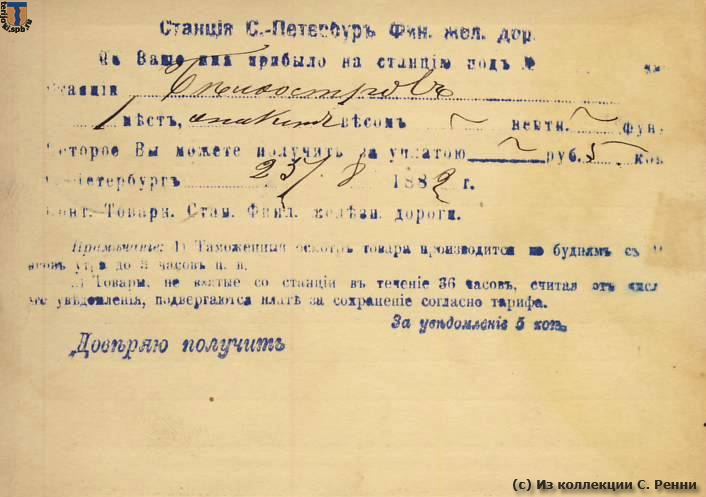 terijoki.spb.ru
Станція С.-Петербургъ Фин. жел. дор.
На Ваше имя прибыло на станцію подъ №
станціи Бѣлоостровъ
1 мѣстъ, вѣсомъ ~ ~ фун.
Которое Вы можете получить за уплатою ~ руб. 5 коп
С.-Петербургъ 25/8 1882 г.
Конт. Товарн. Стан. Финл. желѣзн. дороги.
Примѣчаніе: 1) Таможенный осмотръ товара производится по буднямъ съ
часовъ утра до 3 часовъ п. п.
2) Товары, не взятые со станціи въ теченіе 36 часовъ, считая отъ числа
его увѣдомленія, подвергаются платѣ за сохраненіе согласно тарифа.
За увѣдомленіе 5 коп.
„Довѣряю получить
(с) Из коллекции С. Ренни